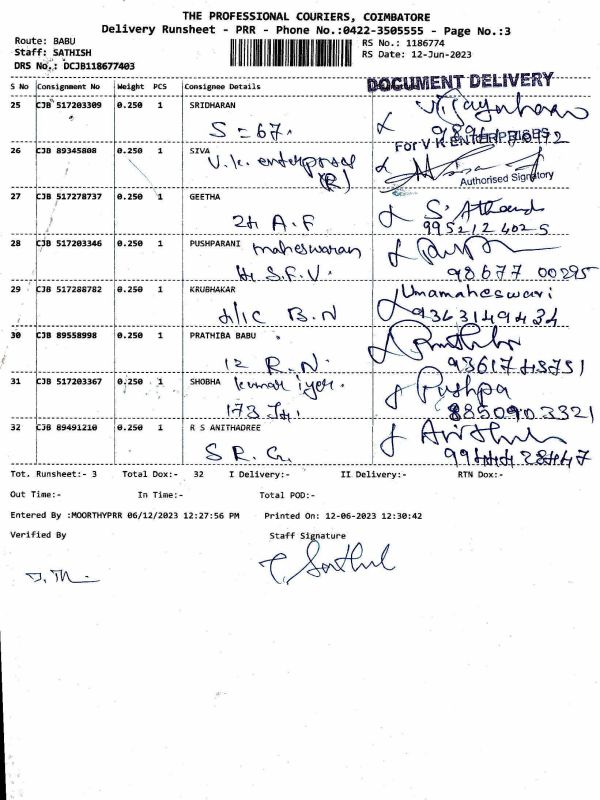 THE PROFESSIONAL COURIERS, COIMBATORE
Delivery Runsheet - PRR - Phone No.:0422-3505555 - Page No.:3
Route: BABU
Staff: SATHISH
DRS No.: DCJB118677403
RS No.: 1186774
RS Date: 12-Jun-2023
DOCUMENT DELIVERY
S No Consignment No Weight PCS Consignee Details
25 CJB 517203309 0.250 1 SRIDHARAN
S=67.
26 CJB 89345808 0.250 1 SIVA
V.K. enterprises
(R)
For V K ENTERPRISES
Authorised Signatory
27 CJB 517278737 0.250 1 GEETHA
24 A.F
99521 2 402 5
28 CJB 517203346 0.250 1 PUSHPARANI
maheswaran
S.F.V.
98677 00295
29 CJB 517288782 0.250 1 KRUBHAKAR
Umamaheswari
B.N
9363149434
30 CJB 89558998 0.250 1 PRATHIBA BABU
12 R.N.
9361743751
31 CJB 517203367 0.250 1 SHOBHA
Kumar iyer.
Pushpa
173
8850903321
32 CJB 89491210 0.250 1 R S ANITHADREE
S R. G.
9944428447
Tot. Runsheet:- 3 Total Dox:- 32 I Delivery:- II Delivery:- RTN Dox:-
Out Time:- In Time:- Total POD:-
Entered By :MOORTHYPRR 06/12/2023 12:27:56 PM Printed On: 12-06-2023 12:30:42
Verified By Staff Signature